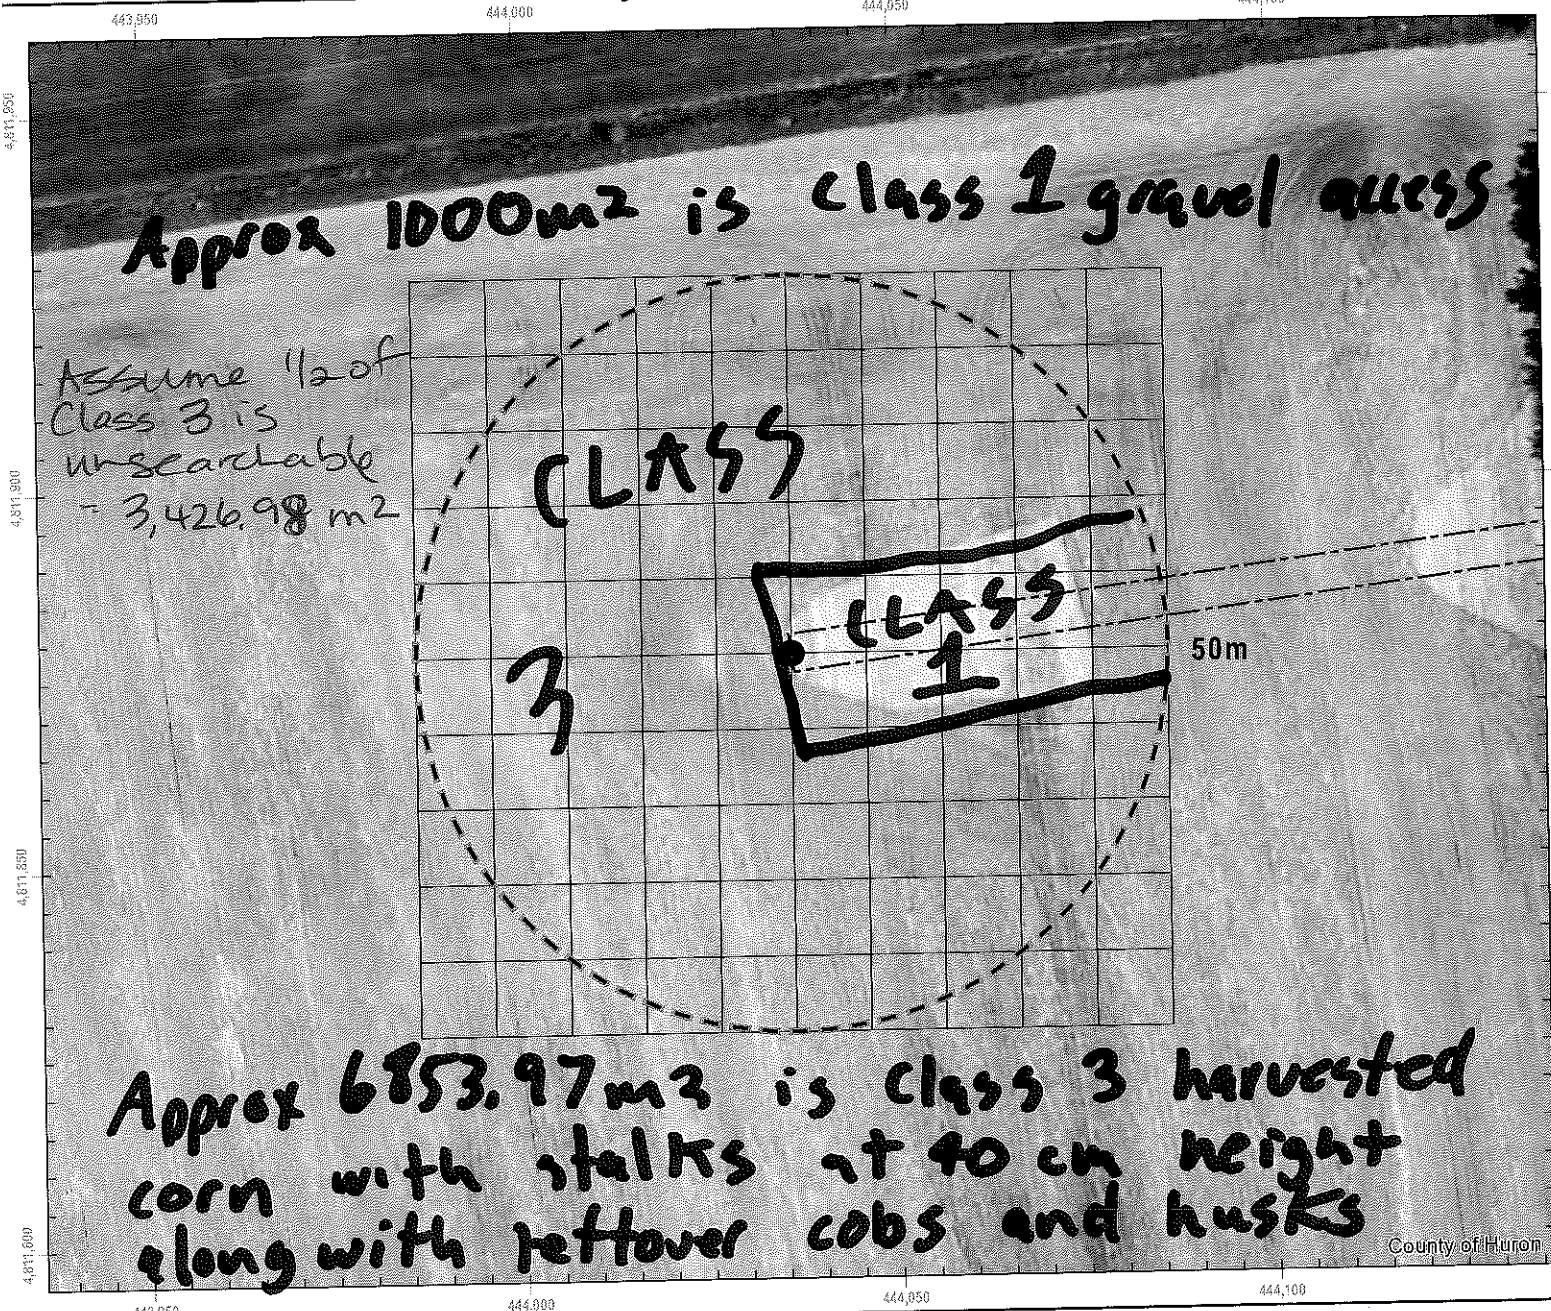 443,950 444,000 444,050
4,811,950
Approx 1000m2 is Class 1 gravel access
Assume 1/2 of
Class 3 is
unsearchable
- 3,426.98 m2
4,811,900
CLASS
CLASS
1
3
50m
4,811,850
Approx 6853.97m2 is Class 3 harvested
corn with stalks at 40 cm height
along with leftover cobs and husks
County of Huron
4,811,800
443,950 444,000 444,050 444,100